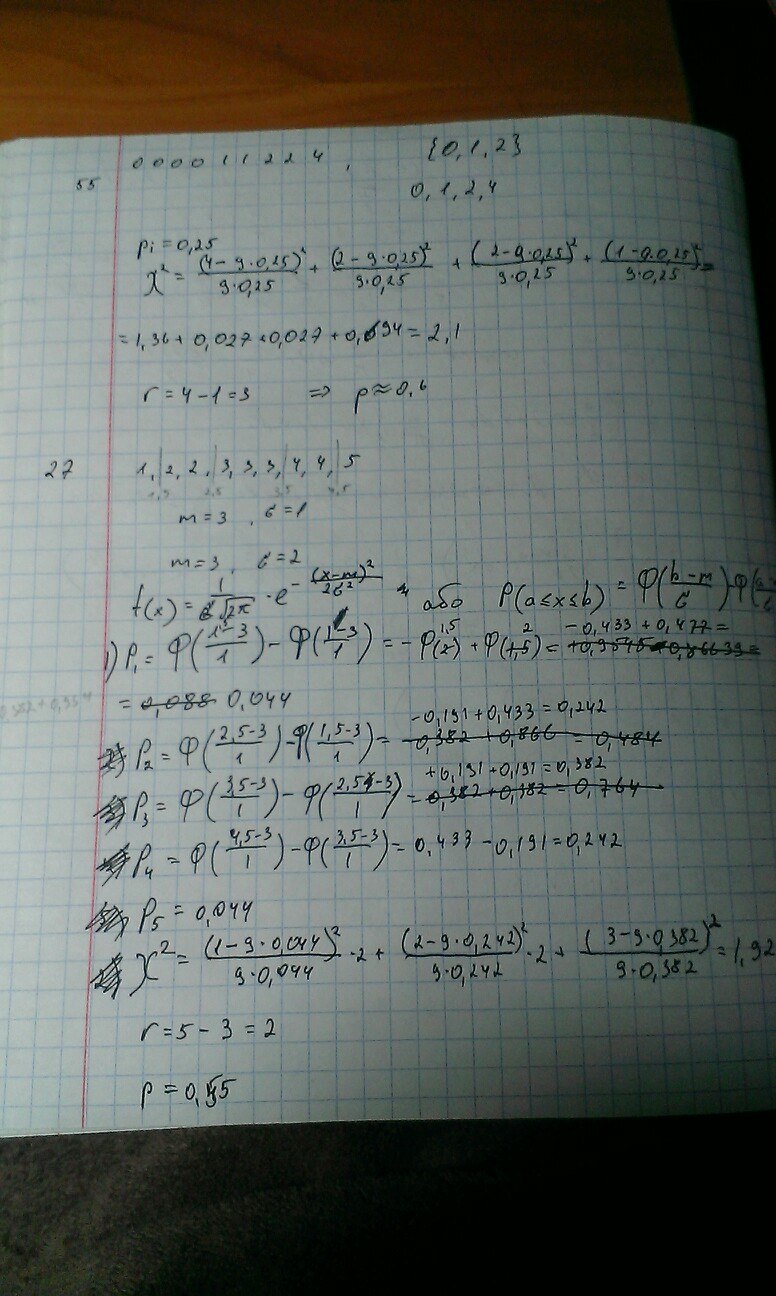 0 0 0 0 1 1 2 2 4 , {0,1,2}
55
0, 1, 2, 4
pi = 0,25
χ² = (4-9·0,25)²/9·0,25 + (2-9·0,25)²/9·0,25 + (2-9·0,25)²/9·0,25 + (1-9·0,25)²/9·0,25 =
= 1,36 + 0,027 + 0,027 + 0,694 = 2,1
r = 4-1 = 3 ⇒ p ≈ 0,6
27 1,|2, 2,|3, 3, 3,|4, 4,|5
1,5 2,5 3,5 4,5
m = 3 , σ = 1
m = 3 , σ = 2
f(x) = 1/σ√2π · e^-(x-m)²/2σ² або P(a≤x≤b) = Φ(b-m/σ) - Φ(
1) P₁ = Φ( -3/1) - Φ(1-3/1) = - Φ( ) + Φ( ) = -0,433 + 0,477 =
= 0,088 0,044
P₂ = Φ(2,5-3/1) - Φ(1,5-3/1) = -0,191 + 0,433 = 0,242
0,382 + 0,866 = 0,484
P₃ = Φ(3,5-3/1) - Φ(2,5-3/1) = +0,191 + 0,191 = 0,382
0,382 + 0,382 = 0,764
P₄ = Φ(4,5-3/1) - Φ(3,5-3/1) = 0,433 - 0,191 = 0,242
P₅ = 0,044
χ² = (1-9·0,044)²/9·0,044 ·2 + (2-9·0,242)²/9·0,242 ·2 + (3-9·0,382)²/9·0,382 = 1,92
r = 5 - 3 = 2